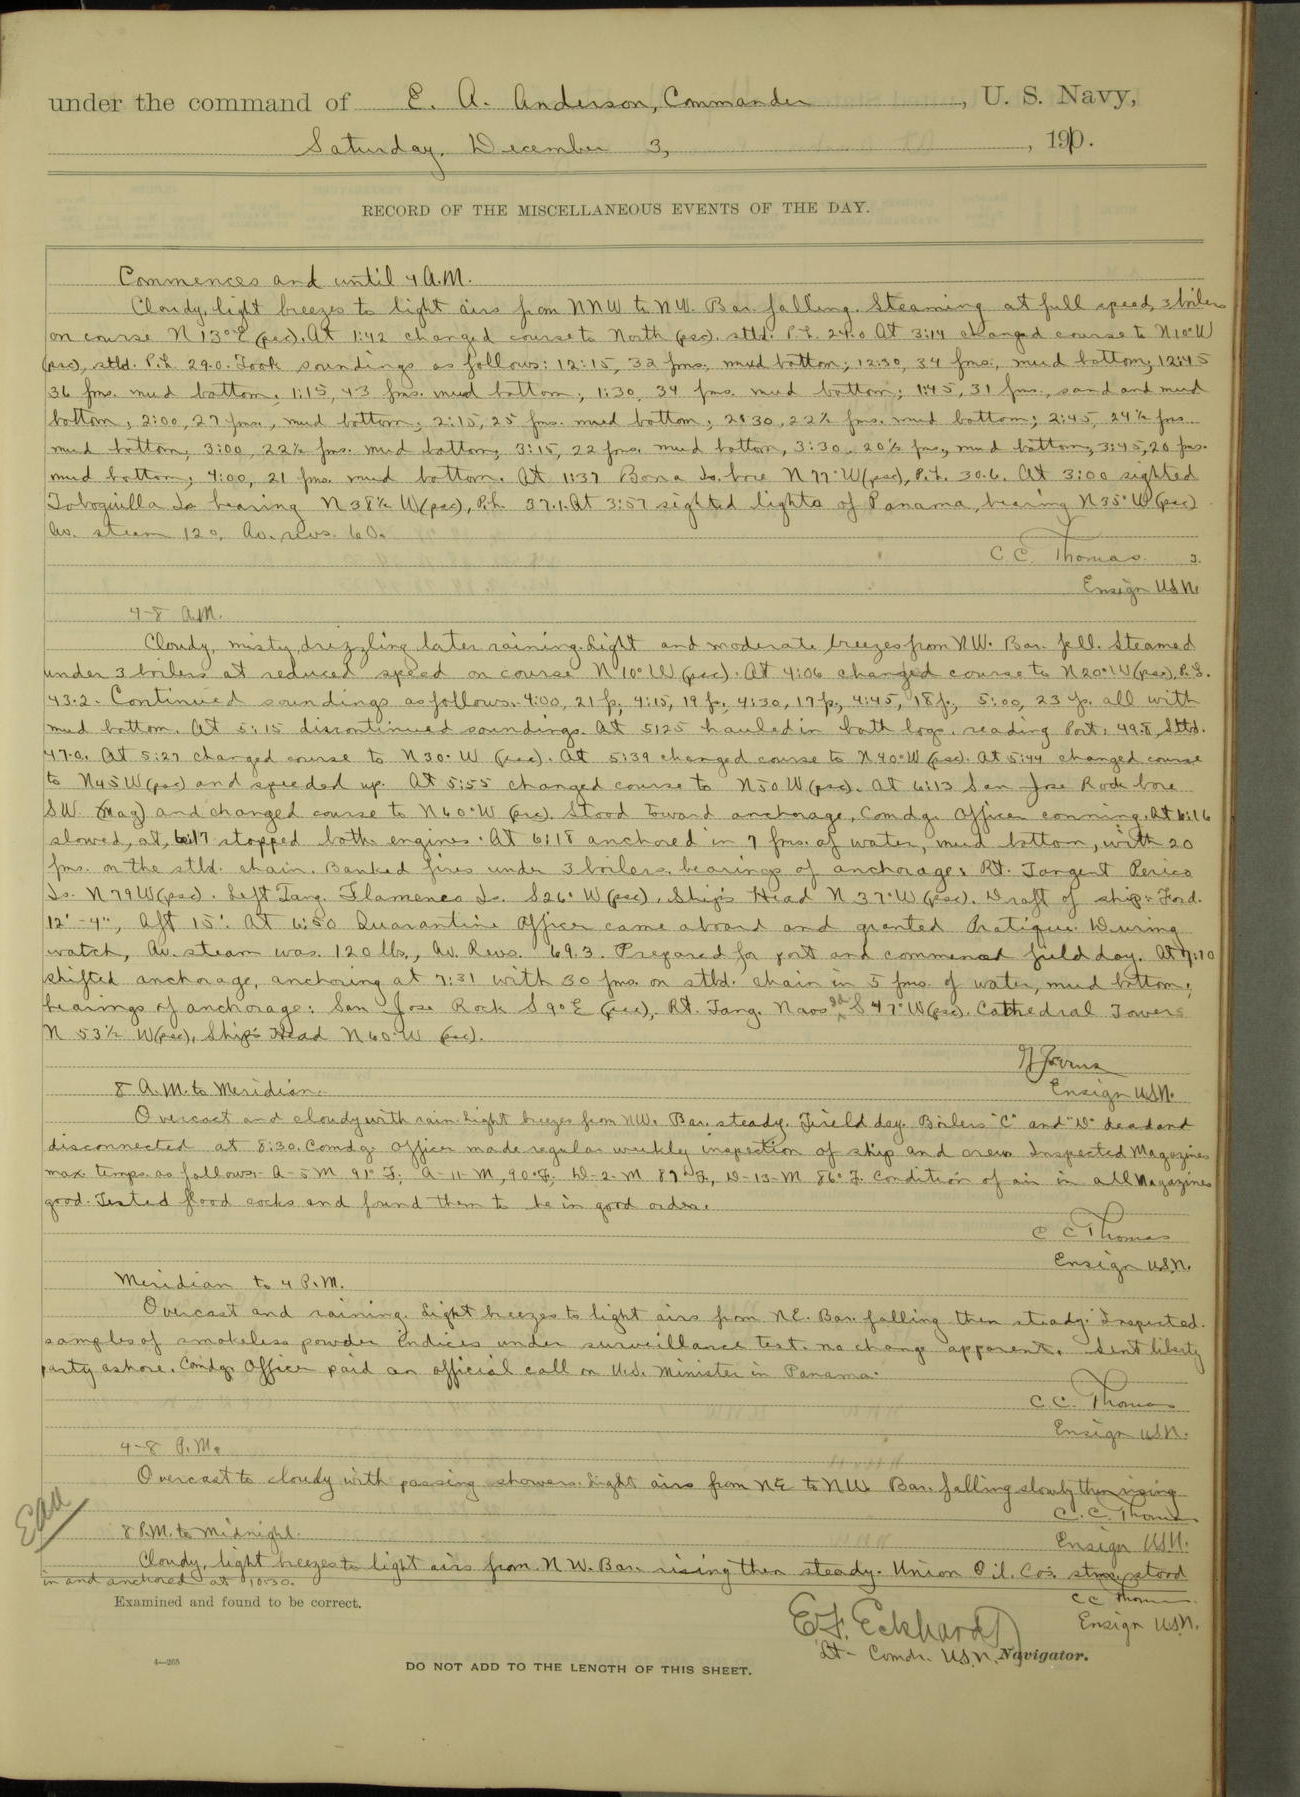 under the command of E. A. Anderson, Commander, U. S. Navy,
Saturday, December 3, 1910.
RECORD OF THE MISCELLANEOUS EVENTS OF THE DAY.
Commences and until 4 A.M.
Cloudy, light breezes to light airs from NNW to NW. Bar. falling. Steaming at full speed, 3 boilers
on course N 13° E (psc). At 1:42 changed course to North (psc). stbd. P.L. 24.0 At 3:14 changed course to N10°W
(psc), stbd. P.L. 29.0. Took soundings as follows: 12:15, 32 fms. mud bottom; 12:30, 34 fms., mud bottom; 12:45
36 fms. mud bottom; 1:15, 43 fms. mud bottom; 1:30, 34 fms. mud bottom; 1:45, 31 fms., sand and mud
bottom; 2:00, 27 fms., mud bottom; 2:15, 25 fms. mud bottom; 2:30, 22½ fms. mud bottom; 2:45, 24½ fms.
mud bottom; 3:00, 22½ fms. mud bottom; 3:15, 22 fms. mud bottom, 3:30, 20½ fms, mud bottom; 3:45, 20 fms.
mud bottom; 4:00, 21 fms. mud bottom. At 1:37 Bona Is. bore N 77° W (psc), P.L. 30.6. At 3:00 sighted
Toboguilla Is. bearing N 38½ W (psc), P.L. 37.1. At 3:57 sighted lights of Panama, bearing N 35° W (psc)
Av. steam 120, Av. revs. 60.
C C Thomas
Ensign USN.
4-8 A.M.
Cloudy, misty, drizzling later raining. Light and moderate breezes from NW. Bar. fell. Steamed
under 3 boilers at reduced speed on course N 10° W (psc). At 4:06 changed course to N20°W (psc), P.L.
43.2. Continued soundings as follows:- 4:00, 21 f., 4:15, 19 f., 4:30, 17 f., 4:45, 18 f., 5:00, 23 f. all with
mud bottom. At 5:15 discontinued soundings. At 5:25 hauled in both logs, reading Port: 49.8, Stbd.
47.0. At 5:27 changed course to N30°W (psc). At 5:39 changed course to N40°W (psc). At 5:44 changed course
to N45W (psc) and speeded up. At 5:55 changed course to N50W (psc). At 6:13 San Jose Rock bore
SW. (Mag) and changed course to N60°W (psc). Stood toward anchorage, Comdg. Officer conning. At 6:16
slowed, at 6:17 stopped both engines. At 6:18 anchored in 7 fms. of water, mud bottom, with 20
fms. on the stbd. chain. Banked fires under 3 boilers, bearings of anchorage: Rt. Tangent Perico
Is. N 79W (psc). Left Tang. Flamenco Is. S26° W (psc), Ship's Head N 37° W (psc). Draft of ship: Ford.
12'-4", Aft 15'. At 6:50 Quarantine Officer came aboard and granted Pratique. During
watch, Av. steam was 120 lbs., Av. Revs. 69.3. Prepared for port and commenced field day. At 7:10
shifted anchorage, anchoring at 7:31 with 30 fms. on stbd. chain in 5 fms. of water, mud bottom;
bearings of anchorage: San Jose Rock S 9° E (psc), Rt. Tang. Naos Id. S 47° W (psc). Cathedral Towers
N 53½ W (psc), Ship's Head N60°W (psc).
Ensign USN.
8 A.M. to Meridian.
Overcast and cloudy with rain. Light breezes from NW. Bar. steady. Field day. Boilers "C" and "D" dead and
disconnected at 8:30. Comdg. Officer made regular weekly inspection of ship and crew. Inspected Magazines
max. temps. as follows:- A-5 M 91° F; A-11-M, 90°F; D-2-M 87° F, D-13-M 86° F. Condition of air in all Magazines
good. Tested flood cocks and found them to be in good order.
C C Thomas
Ensign USN.
Meridian to 4 P.M.
Overcast and raining. Light breezes to light airs from NE. Bar. falling then steady. Inspected
samples of smokeless powder indices under surveillance test. no change apparent. Sent liberty
party ashore. Comdg. Officer paid an official call on U.S. Minister in Panama.
C C. Thomas
Ensign USN.
4-8 P.M.
Overcast to cloudy with passing showers. Light airs from NE to NW. Bar. falling slowly then rising
C. C. Thomas
Ensign USN.
8 P.M. to Midnight.
Cloudy, light breezes to light airs from NW. Bar. rising then steady. Union Oil Co's. stmr. stood
in and anchored at 10:30.
C C Thomas
Ensign USN.
Eaa
Examined and found to be correct.
E.F. Eckhardt
Lt-Comdr. USN, Navigator.
4—265
DO NOT ADD TO THE LENGTH OF THIS SHEET.